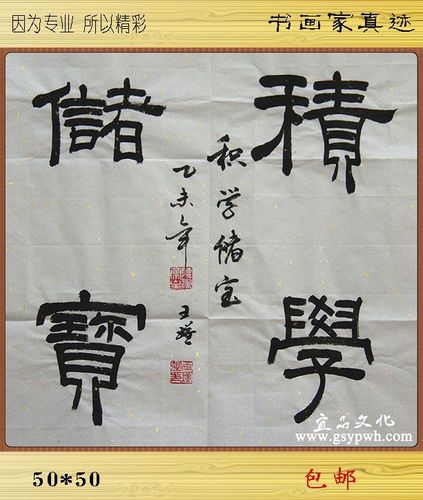 因为专业 所以精彩
书画家真迹
積學
儲寶
积学储宝
乙未年
王
宜品文化
www.gsypwh.com
50*50
包邮